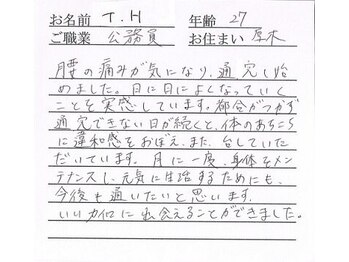 お名前 T.H 年齢 27
ご職業 公務員 お住まい 厚木
腰の痛みが気になり、通院し始
めました。日に日によくなっていく
ことを実感しています。都合がつかず
通院できない日が続くと、体のあちこち
に違和感をおぼえ、また、台していた
だいています。月に一度、身体をメン
テナンスし、元気に生活するためにも、
今後も通いたいと思います。
いいカイロに出会えることができました。